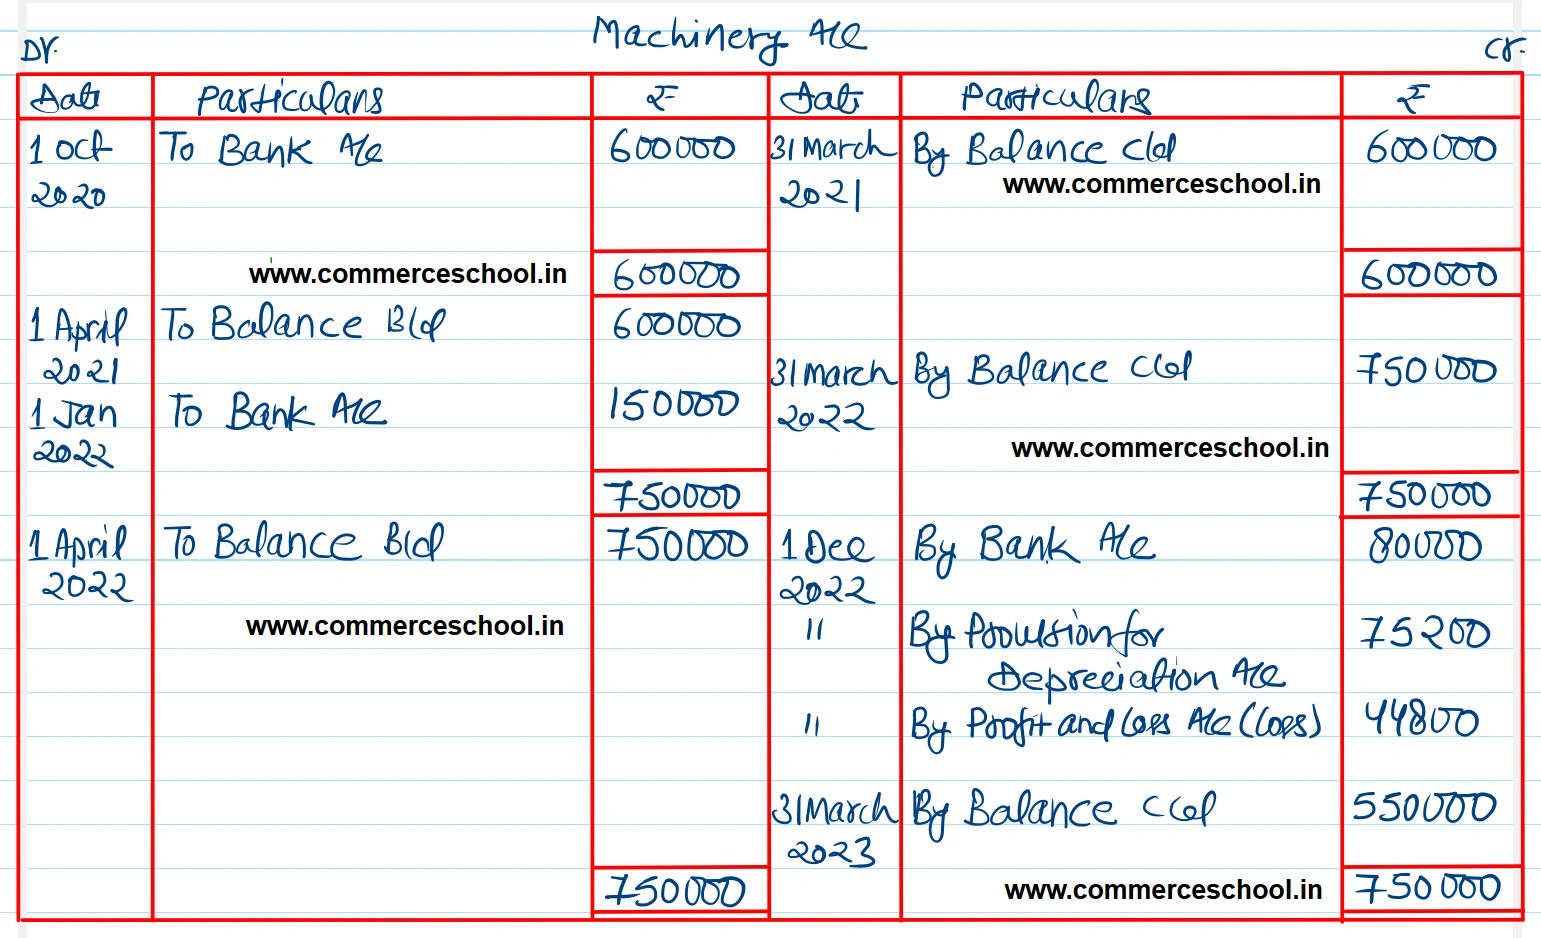 Machinery A/c
Dr. Cr.
Date Particulars ₹ Date Particulars ₹
1 Oct To Bank A/c 600000 31 March By Balance c/d 600000
2020 2021 www.commerceschool.in
www.commerceschool.in 600000 600000
1 April To Balance B/d 600000
2021 31 March By Balance c/d 750000
1 Jan To Bank A/c 150000 2022
2022 www.commerceschool.in
750000 750000
1 April To Balance B/d 750000 1 Dec By Bank A/c 80000
2022 2022
www.commerceschool.in " By Provision for 75200
Depreciation A/c
" By Profit and Loss A/c (Loss) 44800
31 March By Balance c/d 550000
2023
750000 www.commerceschool.in 750000